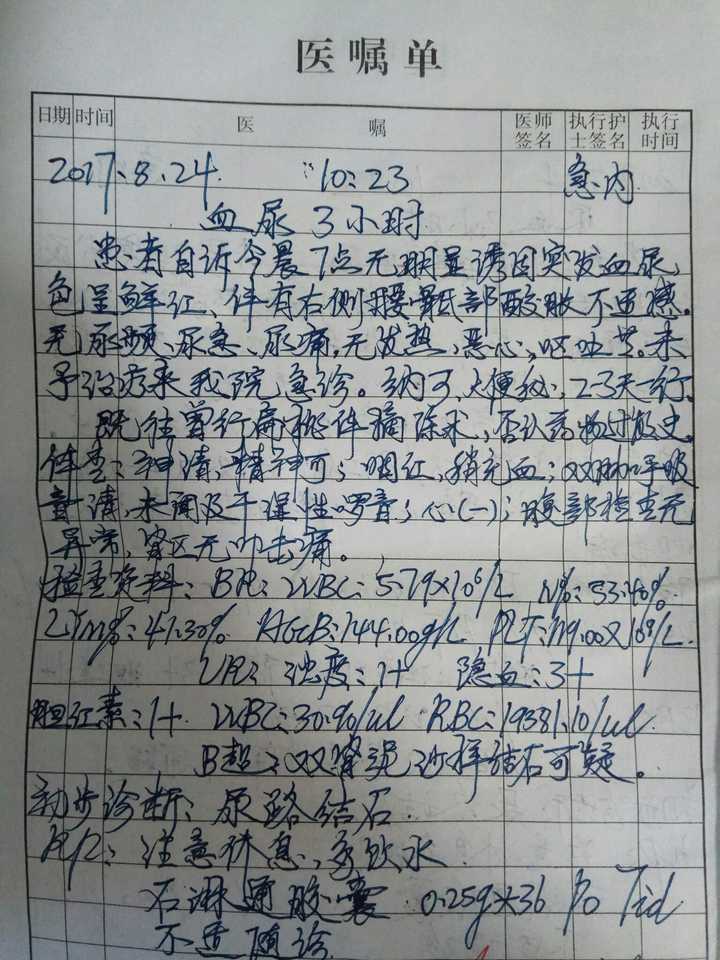 医嘱单
日期 时间 医 嘱 医师签名 执行护士签名 执行时间
2017.8.24 10:23 急内
血尿3小时
患者自诉今晨7点无明显诱因突发血尿,
色呈鲜红、伴有右侧腰骶部酸胀不适感。
无尿频、尿急、尿痛,无发热,恶心,呕吐等。未
予治疗来我院急诊。纳可,大便秘,2-3天一行。
既往曾行扁桃体摘除术,否认药物过敏史。
体查:神清,精神可;咽红,稍充血;双肺呼吸
音清,未闻及干湿性啰音;心(-);腹部检查无
异常,肾区无叩击痛。
检查资料:BR:WBC:5.79×10⁶/L N%:53.40%
LYM%:41.30% HGB:144.00g/L PLT:119.00×10⁹/L.
UR:浊度:1+ 隐血:3+
胆红素:1+ WBC:30.90/ul RBC:19381.10/ul.
B超:双肾泥沙样结石可疑。
初步诊断:尿路结石.
Rp:注意休息,多饮水
石淋通胶囊 0.25g×36 Po Tid
不适随诊